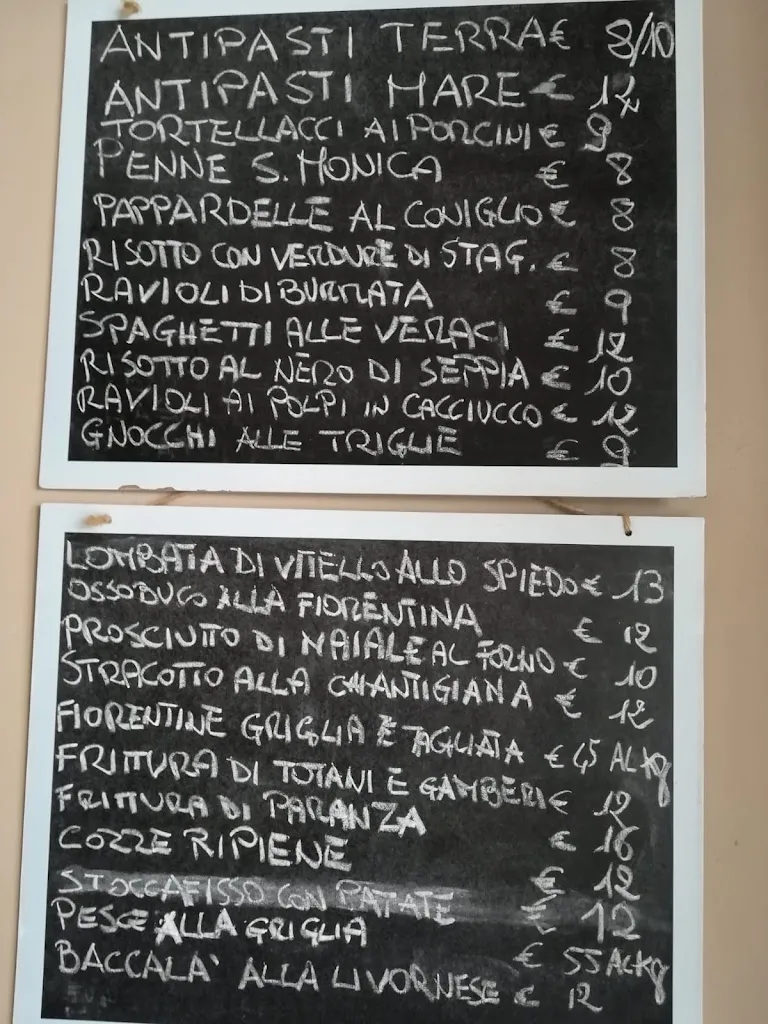 ANTIPASTI TERRA € 8/10
ANTIPASTI MARE € 12
TORTELLACCI AI PORCINI € 9
PENNE S. MONICA € 8
PAPPARDELLE AL CONIGLIO € 8
RISOTTO CON VERDURE DI STAG. € 8
RAVIOLI DI BURRATA € 9
SPAGHETTI ALLE VERACI € 12
RISOTTO AL NERO DI SEPPIA € 10
RAVIOLI AI POLPI IN CACCIUCCO € 12
GNOCCHI ALLE TRIGLIE € 9
LOMBATA DI VITELLO ALLO SPIEDO € 13
OSSOBUCO ALLA FIORENTINA € 12
PROSCIUTTO DI MAIALE AL FORNO € 10
STRACOTTO ALLA CHIANTIGIANA € 12
FIORENTINE GRIGLIA E TAGLIATA € 45 AL Kg
FRITTURA DI TOTANI E GAMBERI € 12
FRITTURA DI PARANZA € 16
COZZE RIPIENE € 12
STOCCAFISSO CON PATATE € 12
PESCE ALLA GRIGLIA € 55 AL Kg
BACCALA' ALLA LIVORNESE € 12